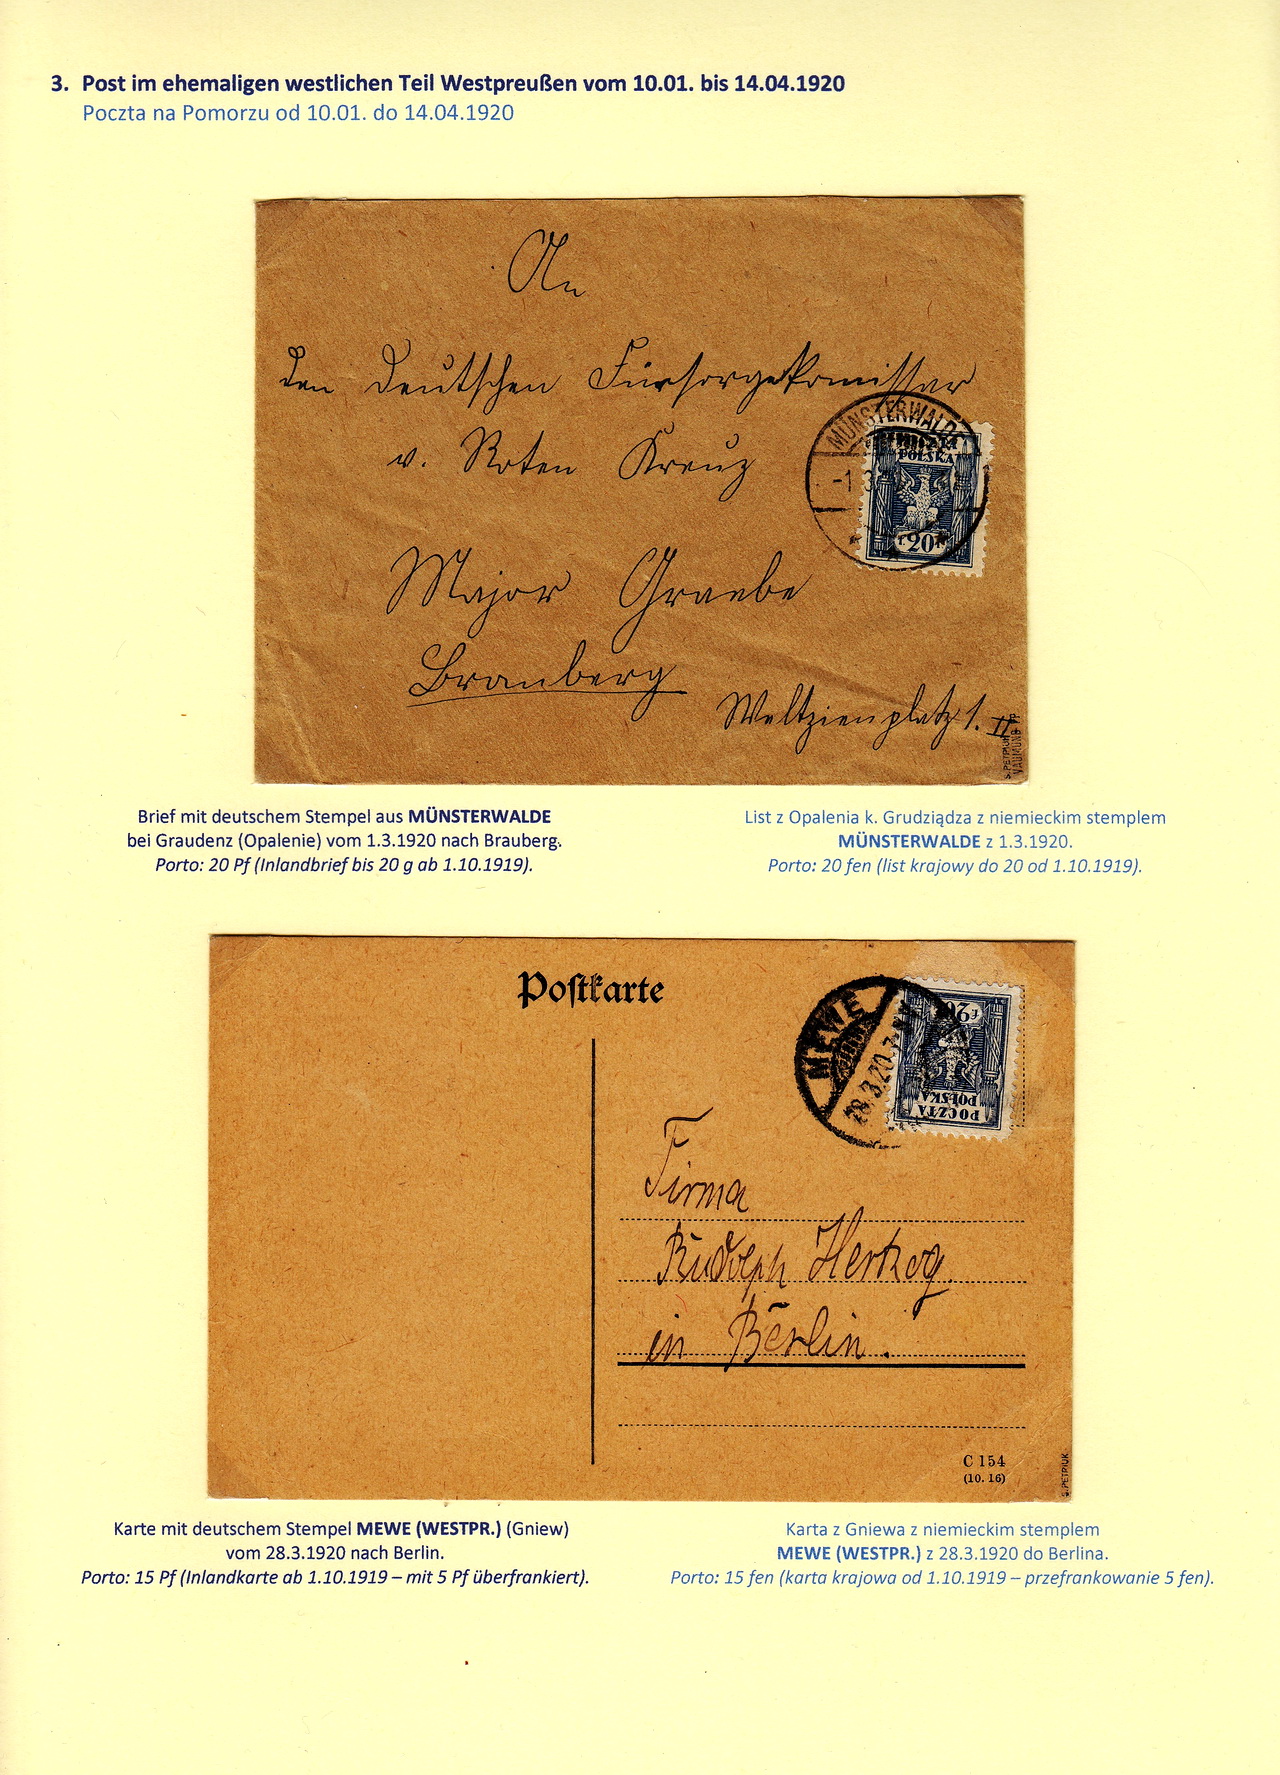 3. Post im ehemaligen westlichen Teil Westpreußen vom 10.01. bis 14.04.1920
Poczta na Pomorzu od 10.01. do 14.04.1920
An
den Deutschen Fürsorgekomissar
v. Roten Kreuz
MÜNSTERWALDE
-1.3.
POCZTA
POLSKA
20
Major Graebe
Bramberg
Weltzienplatz 1. II
S. PETRIUK
Brief mit deutschem Stempel aus MÜNSTERWALDE
bei Graudenz (Opalenie) vom 1.3.1920 nach Brauberg.
Porto: 20 Pf (Inlandbrief bis 20 g ab 1.10.1919).
List z Opalenia k. Grudziądza z niemieckim stemplem
MÜNSTERWALDE z 1.3.1920.
Porto: 20 fen (list krajowy do 20 od 1.10.1919).
Postkarte
MEWE
28.3.20.
F 20
POCZTA
POLSKA
Firma
Rudolph Hertzog
in Berlin.
C 154
(10. 16)
S. PETRIUK
Karte mit deutschem Stempel MEWE (WESTPR.) (Gniew)
vom 28.3.1920 nach Berlin.
Porto: 15 Pf (Inlandkarte ab 1.10.1919 – mit 5 Pf überfrankiert).
Karta z Gniewa z niemieckim stemplem
MEWE (WESTPR.) z 28.3.1920 do Berlina.
Porto: 15 fen (karta krajowa od 1.10.1919 – przefrankowanie 5 fen).